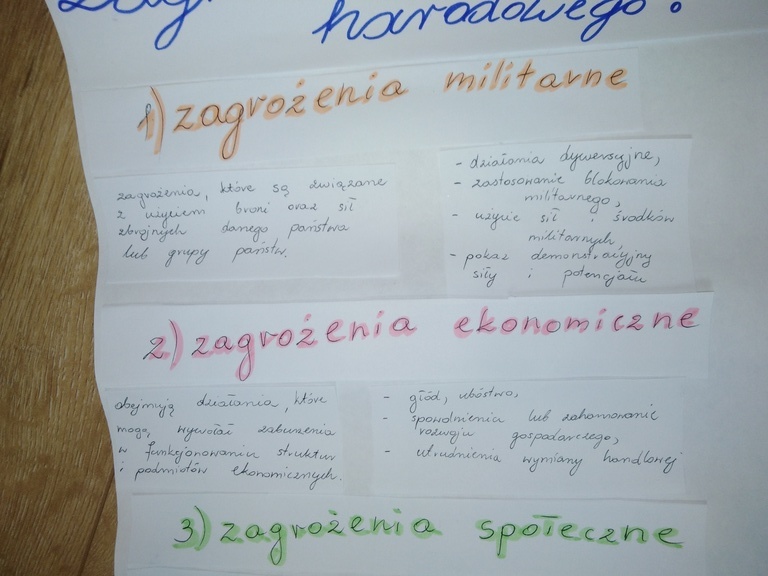 narodowego?
1) zagrożenia militarne
zagrożenia, które są związane
z użyciem broni oraz sił
zbrojnych danego państwa
lub grupy państw.
- działania dywersyjne,
- zastosowanie blokowania
militarnego,
- użycie sił i środków
militarnych,
- pokaz demonstracyjny
siły i potencjału
2) zagrożenia ekonomiczne
obejmują działania, które
mogą wywołać zaburzenia
w funkcjonowaniu struktur
i podmiotów ekonomicznych.
- głód, ubóstwo,
- spowolnienia lub zahamowanie
rozwoju gospodarczego,
- utrudnienia wymiany handlowej
3) zagrożenia społeczne